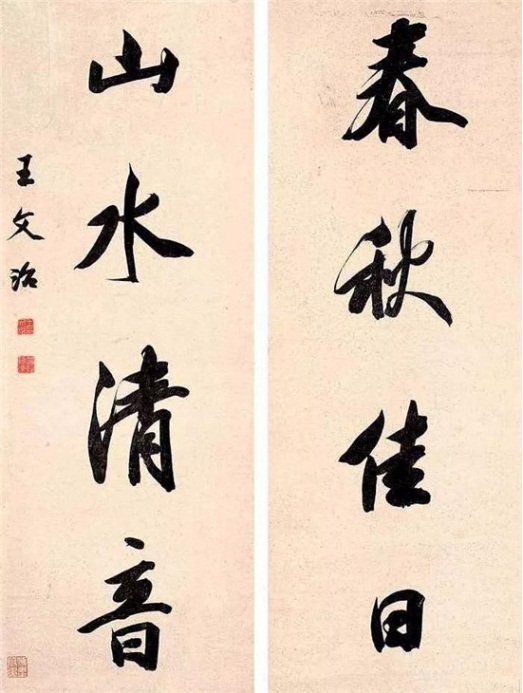 春秋佳日
山水清音
王文治